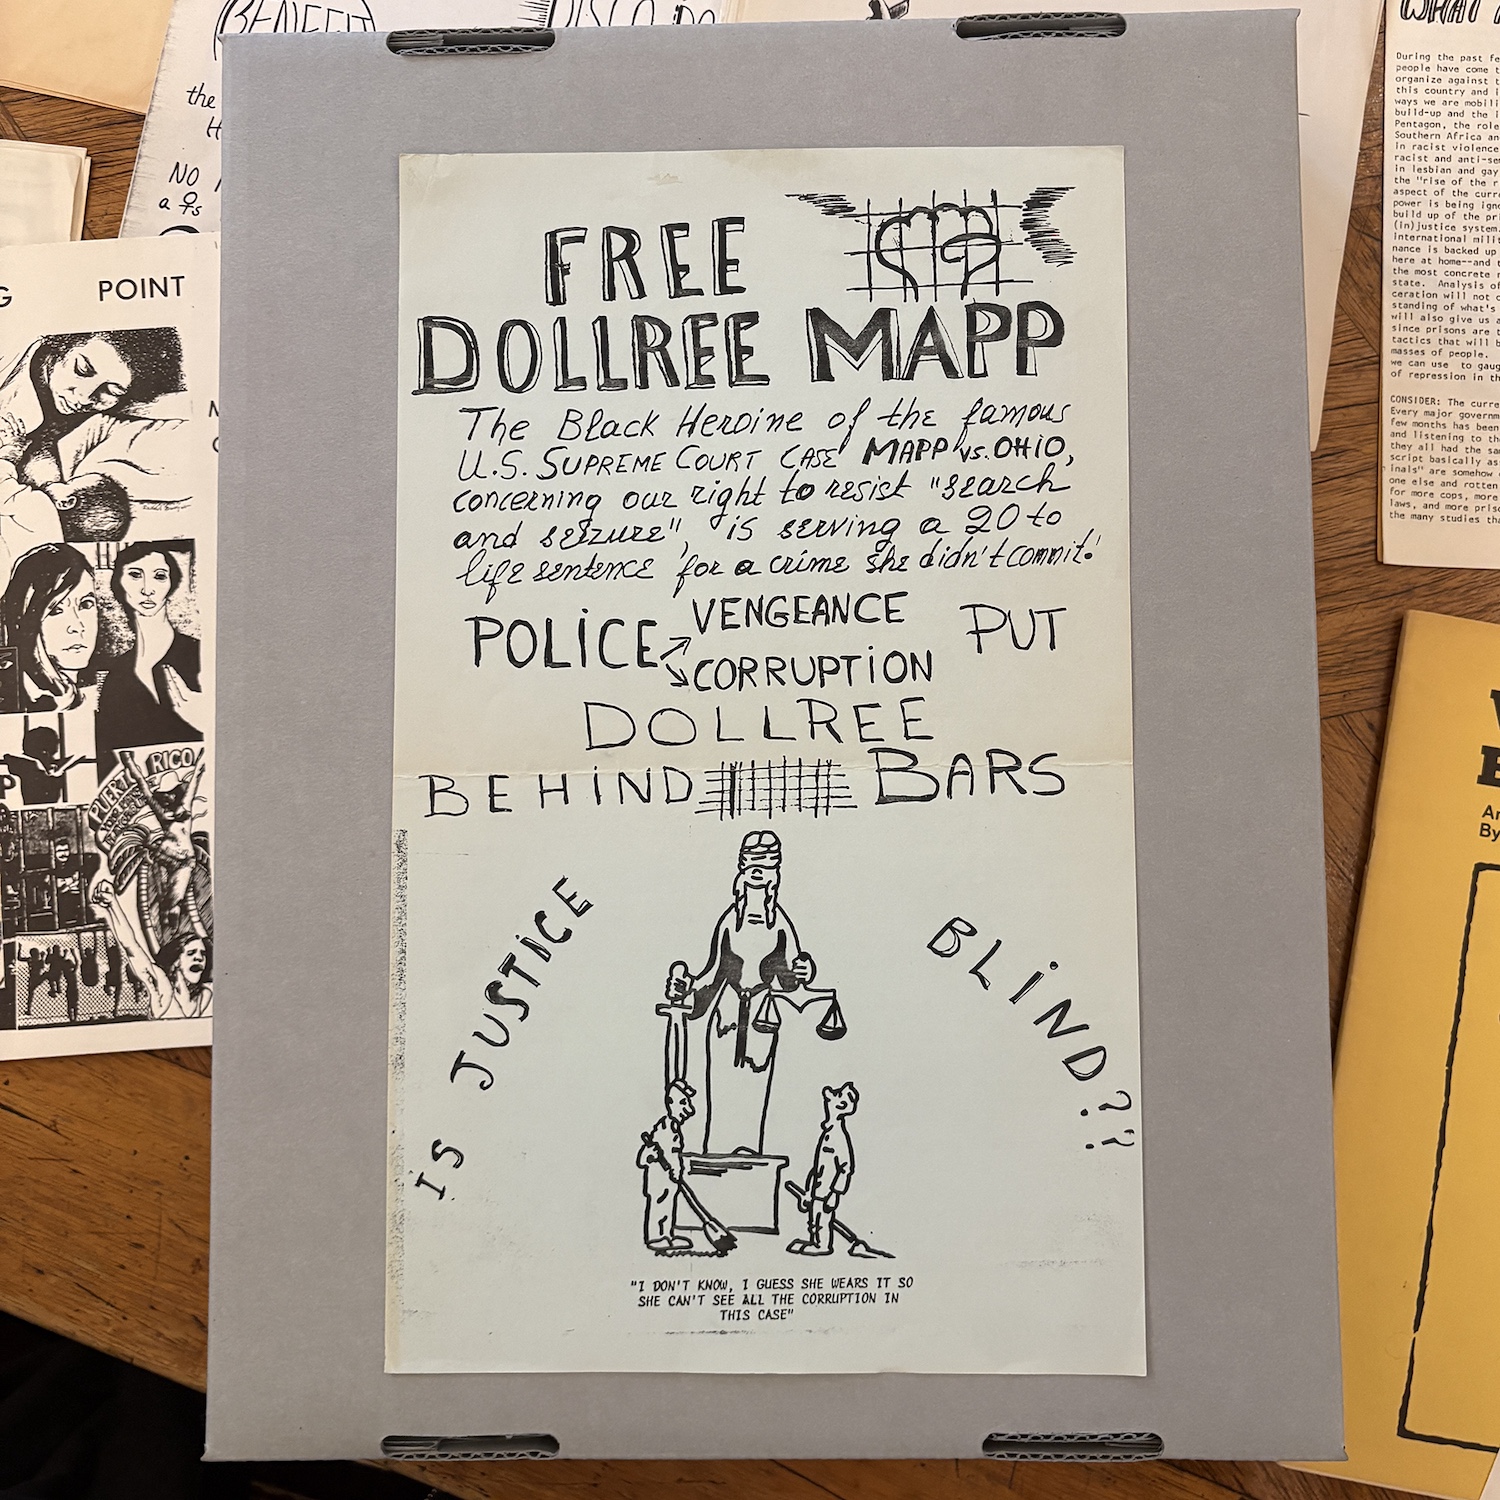 FREE
DOLLREE MAPP
The Black Heroine of the famous
U.S. SUPREME COURT CASE MAPP vs. OHIO,
concerning our right to resist "search
and seizure", is serving a 20 to
life sentence for a crime she didn't commit!
POLICE VENGEANCE CORRUPTION PUT
DOLLREE
BEHIND BARS
IS JUSTICE
BLIND??
"I DON'T KNOW, I GUESS SHE WEARS IT SO
SHE CAN'T SEE ALL THE CORRUPTION IN
THIS CASE"
BENEFIT
the
NO
a
POINT
PUERTO RICO
WHAT
During the past
people have come
organize against
this country and
ways we are
build-up and the
Pentagon, the role
Southern Africa
in racist violence
racist and
in lesbian and gay
the "rise of the
aspect of the
power is being
build up of the
(in)justice system.
international
nance is backed up
here at home--and
the most concrete
state. Analysis of
ceration will not
standing of what's
will also give us
since prisons are
tactics that will
masses of people.
we can use to
of repression in
CONSIDER: The
Every major
few months has been
and listening to
they all had the
script basically
inals" are somehow
one else and rotten
for more cops, more
laws, and more
the many studies
By